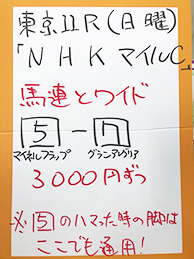 東京11R(日曜)
「NHKマイルC」
馬連とワイド
5-7
マイネルフラップ グランアレグリア
3000円ずつ
※5のハマった時の脚は
ここでも通用!